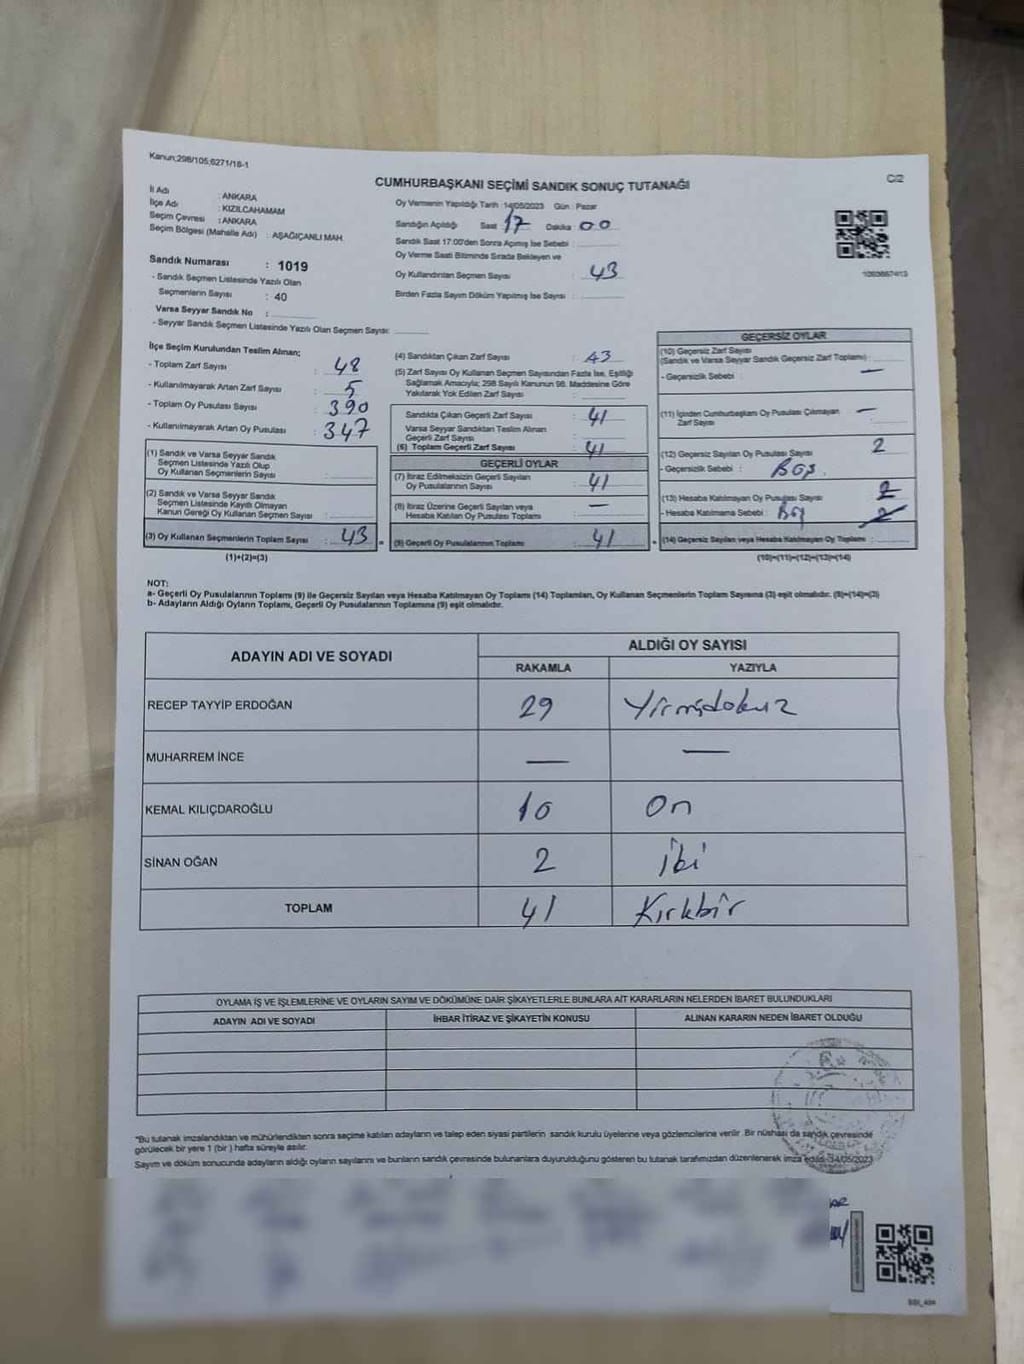 Kanun;298/105;6271/18-1
CUMHURBAŞKANI SEÇİMİ SANDIK SONUÇ TUTANAĞI
C/2
İl Adı : ANKARA
İlçe Adı : KIZILCAHAMAM
Seçim Çevresi : ANKARA
Seçim Bölgesi (Mahalle Adı) : AŞAĞIÇANLI MAH.
Oy Vermenin Yapıldığı Tarih : 14/05/2023 Gün : Pazar
Sandığın Açıldığı Saat 17 Dakika 00
Sandık Saat 17:00'den Sonra Açılmış İse Sebebi :
Oy Verme Saati Bitiminde Sırada Bekleyen ve
Oy Kullandırılan Seçmen Sayısı : 43
Birden Fazla Sayım Döküm Yapılmış İse Sayısı :
Sandık Numarası : 1019
- Sandık Seçmen Listesinde Yazılı Olan
Seçmenlerin Sayısı : 40
Varsa Seyyar Sandık No :
- Seyyar Sandık Seçmen Listesinde Yazılı Olan Seçmen Sayısı:
İlçe Seçim Kurulundan Teslim Alınan;
- Toplam Zarf Sayısı : 48
- Kullanılmayarak Artan Zarf Sayısı : 5
- Toplam Oy Pusulası Sayısı : 390
- Kullanılmayarak Artan Oy Pusulası : 347
(1) Sandık ve Varsa Seyyar Sandık
Seçmen Listesinde Yazılı Olup
Oy Kullanan Seçmenlerin Sayısı :
(2) Sandık ve Varsa Seyyar Sandık
Seçmen Listesinde Kayıtlı Olmayan
Kanun Gereği Oy Kullanan Seçmen Sayısı :
(3) Oy Kullanan Seçmenlerin Toplam Sayısı : 43 =
(1)+(2)=(3)
(4) Sandıktan Çıkan Zarf Sayısı : 43
(5) Zarf Sayısı Oy Kullanan Seçmen Sayısından Fazla İse, Eşitliği
Sağlamak Amacıyla; 298 Sayılı Kanunun 98. Maddesine Göre
Yakılarak Yok Edilen Zarf Sayısı :
Sandıkta Çıkan Geçerli Zarf Sayısı : 41
Varsa Seyyar Sandıktan Teslim Alınan
Geçerli Zarf Sayısı :
(6) Toplam Geçerli Zarf Sayısı : 41
GEÇERLİ OYLAR
(7) İtiraz Edilmeksizin Geçerli Sayılan
Oy Pusulalarının Sayısı : 41
(8) İtiraz Üzerine Geçerli Sayılan veya
Hesaba Katılan Oy Pusulası Toplamı : —
(9) Geçerli Oy Pusulalarının Toplamı : 41
GEÇERSİZ OYLAR
(10) Geçersiz Zarf Sayısı
(Sandık ve Varsa Seyyar Sandık Geçersiz Zarf Toplamı) :
- Geçersizlik Sebebi : —
(11) İçinden Cumhurbaşkanı Oy Pusulası Çıkmayan —
Zarf Sayısı :
(12) Geçersiz Sayılan Oy Pusulası Sayısı : 2
- Geçersizlik Sebebi : Boş.
(13) Hesaba Katılmayan Oy Pusulası Sayısı : 2
- Hesaba Katılmama Sebebi : Boş 2
(14) Geçersiz Sayılan veya Hesaba Katılmayan Oy Toplamı :
(10)+(11)+(12)+(13)=(14)
NOT:
a- Geçerli Oy Pusulalarının Toplamı (9) ile Geçersiz Sayılan veya Hesaba Katılmayan Oy Toplamı (14) Toplamları, Oy Kullanan Seçmenlerin Toplam Sayısına (3) eşit olmalıdır. (9)+(14)=(3)
b- Adayların Aldığı Oyların Toplamı, Geçerli Oy Pusulalarının Toplamına (9) eşit olmalıdır.
ADAYIN ADI VE SOYADI ALDIĞI OY SAYISI
RAKAMLA YAZIYLA
RECEP TAYYİP ERDOĞAN 29 Yirmidokuz
MUHARREM İNCE — —
KEMAL KILIÇDAROĞLU 10 On
SİNAN OĞAN 2 İki
TOPLAM 41 Kırkbir
OYLAMA İŞ VE İŞLEMLERİNE VE OYLARIN SAYIM VE DÖKÜMÜNE DAİR ŞİKAYETLERLE BUNLARA AİT KARARLARIN NELERDEN İBARET BULUNDUKLARI
ADAYIN ADI VE SOYADI İHBAR İTİRAZ VE ŞİKAYETİN KONUSU ALINAN KARARIN NEDEN İBARET OLDUĞU
*Bu tutanak imzalandıktan ve mühürlendikten sonra seçime katılan adayların ve talep eden siyasi partilerin sandık kurulu üyelerine veya gözlemcilerine verilir. Bir nüshası da sandık çevresinde
görülecek bir yere 1 (bir) hafta süreyle asılır.
Sayım ve döküm sonucunda adayların aldığı oyların sayılarını ve bunların sandık çevresinde bulunanlara duyurulduğunu gösteren bu tutanak tarafımızdan düzenlenerek imza edildi. 14/05/2023